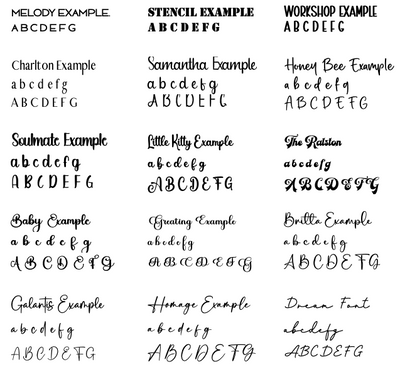 MELODY EXAMPLE
ABCDEFG
STENCIL EXAMPLE
ABCDEFG
WORKSHOP EXAMPLE
ABCDEFG
Charlton Example
abcdefg
ABCDEFG
Samantha Example
abcdefg
ABCDEFG
Honey Bee Example
abcdefg
ABCDEFG
Soulmate Example
abcdefg
ABCDEFG
Little Kitty Example
abcdefg
ABCDEFG
The Ralston
abcdefg
ABCDEFG
Baby Example
abcdefg
ABCDEFG
Greating Example
abcdefg
ABCDEFG
Britta Example
abcdefg
ABCDEFG
Galantis Example
abcdefg
ABCDEFG
Homage Example
abcdefg
ABCDEFG
Dream Font
abcdefg
ABCDEFG